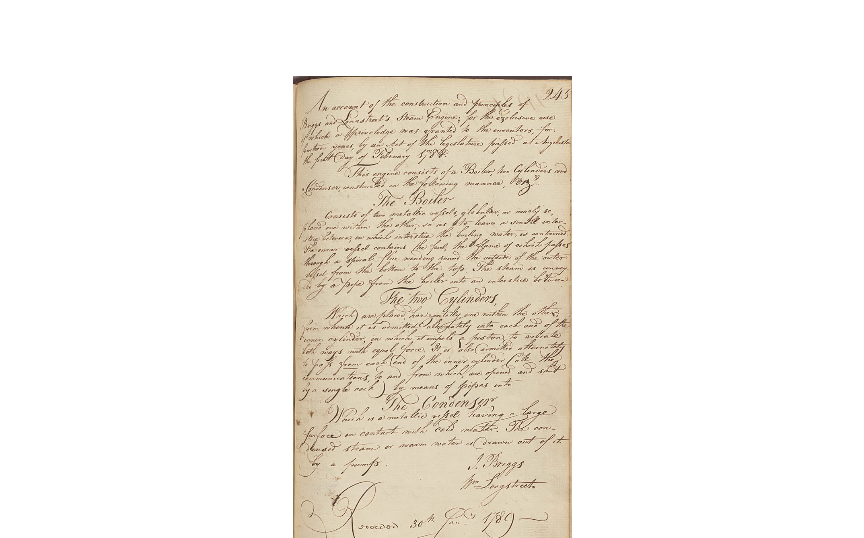 245
An account of the construction and principles of
Briggs and Longstreet's Steam Engine, for the exclusive use
of which a priviledge was granted to the inventors, for
years, by an Act of the Legislature passed at Augusta
the first day of February 1788.
This engine consists of a Boiler, two Cylinders and
Condenser, constructed in the following manner,
The Boiler
Consists of two metallic vessels, globular, or nearly so,
placed one within the other, so as to leave a small inter-
stice between, in which interstice the boiling water is contained
The inner vessel contains the fuel, the of which passes
through a spiral flue winding round the outside of the outer
vessel from the bottom to the top. The steam is convey-
ed by a pipe from the boiler into an interstice between
The two Cylinders,
Which are placed horizontally one within the other,
from whence it is admitted alternately into each end of the
inner cylinder, in which it impels a piston to vibrate
both ways with equal force. It is also admitted alternately
to pass from each end of the inner cylinder (all the
communications, to and from which, are opened and shut
by a single cock) by means of pipes into
The Condenser
Which is a metallic vessel having a large
surface in contact with cold water. The con-
densed steam or warm water is drawn out of it
by a pump.
I. Briggs
Wm Longstreet
Recorded 30th Jany 1789